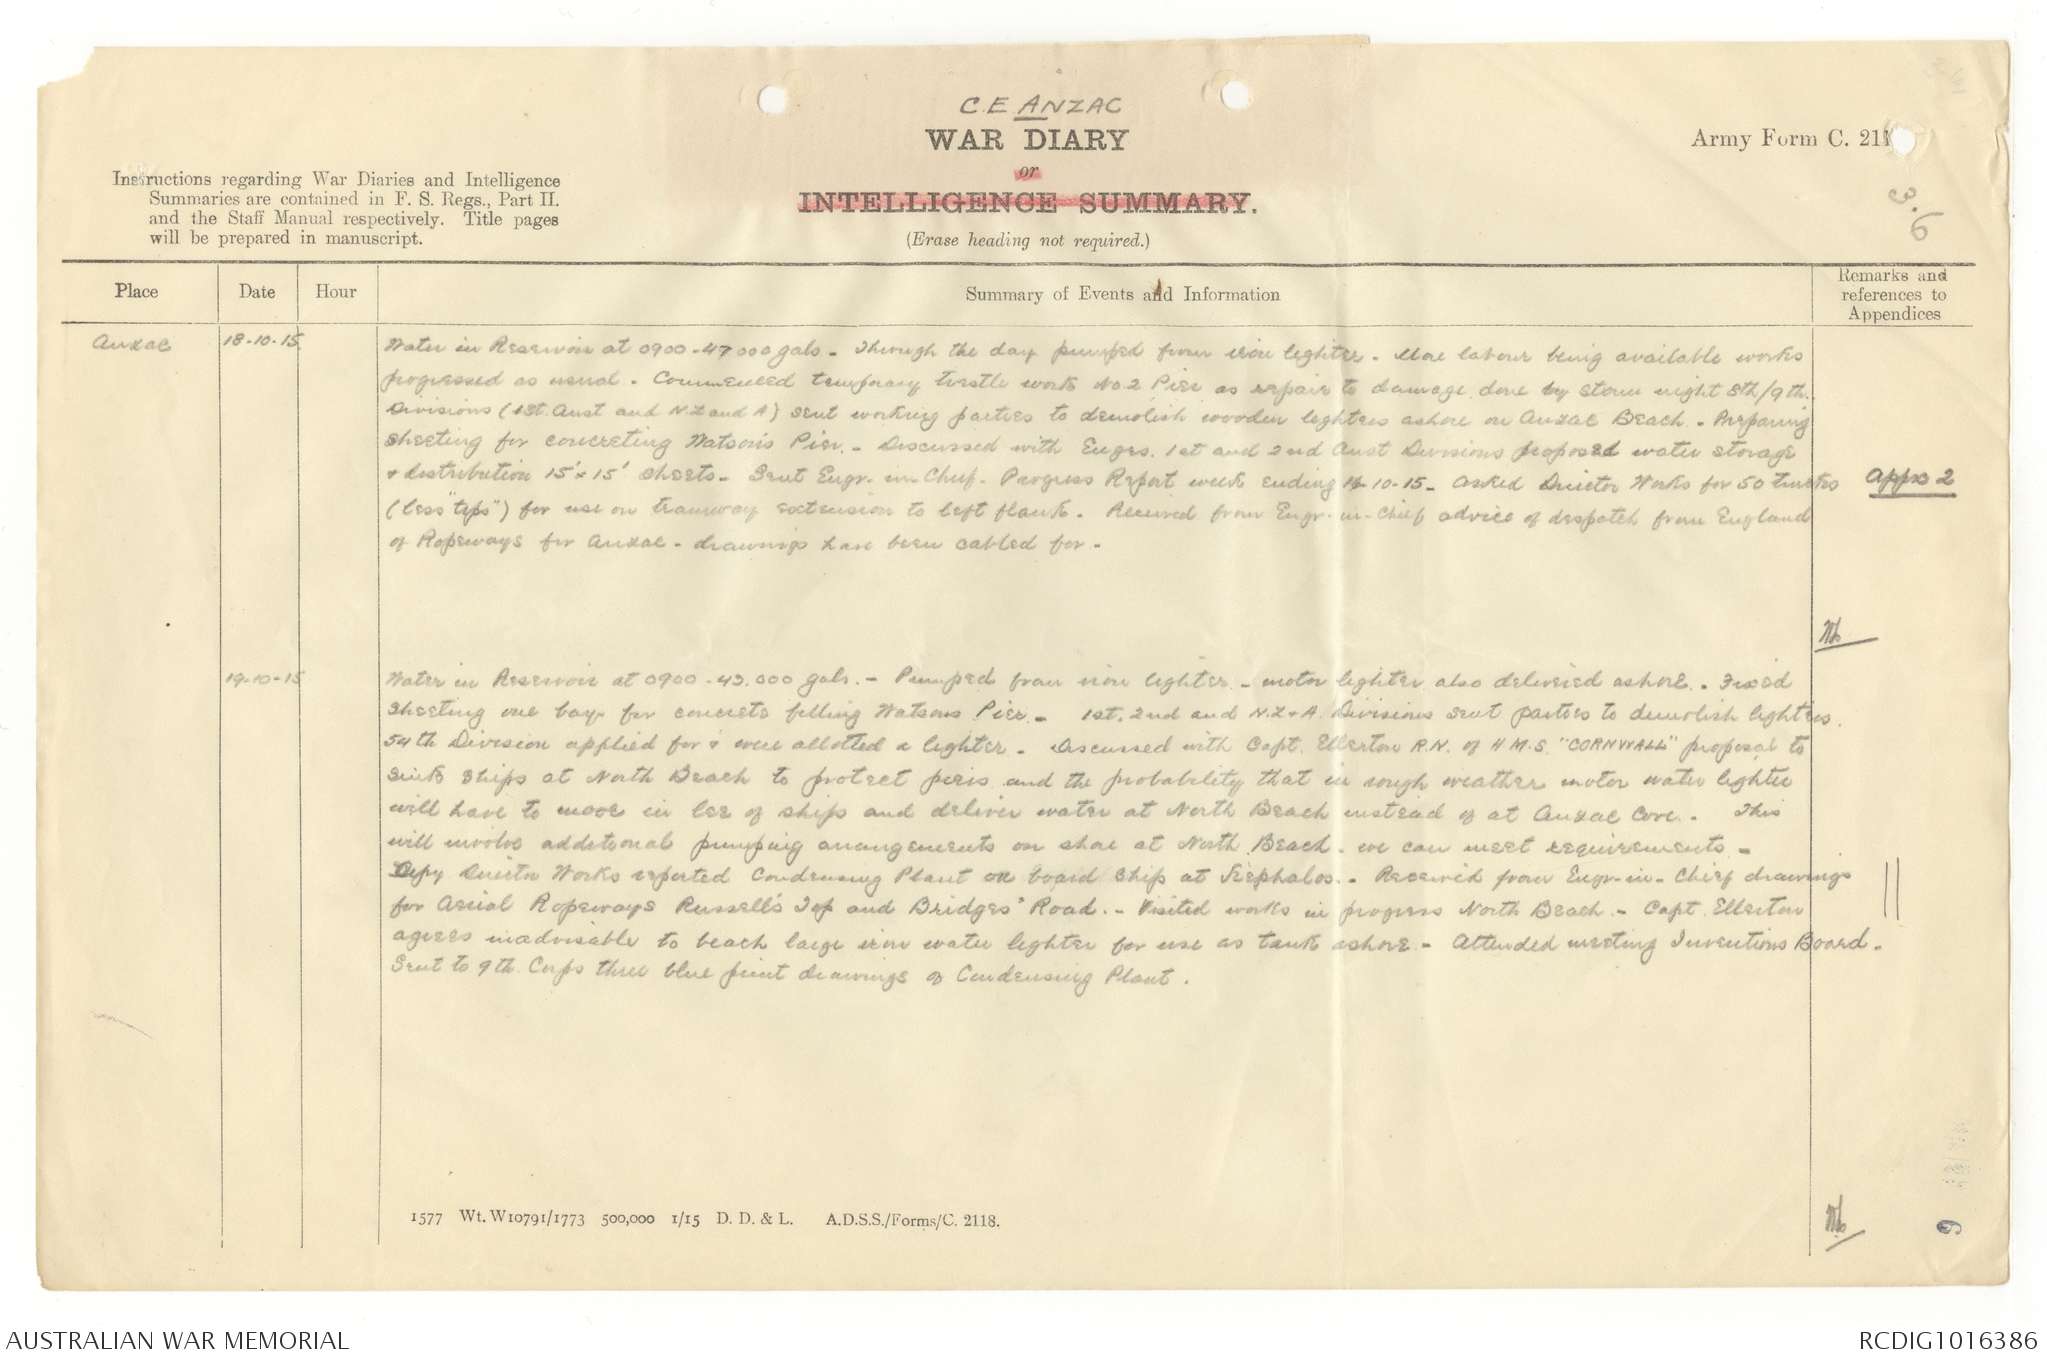 C.E ANZAC
WAR DIARY
or
INTELLIGENCE SUMMARY.
(Erase heading not required.)
Army Form C. 211
Instructions regarding War Diaries and Intelligence
Summaries are contained in F. S. Regs., Part II.
and the Staff Manual respectively. Title pages
will be prepared in manuscript.
3.6
Place
Date
Hour
Summary of Events and Information
Remarks and
references to
Appendices
Anzac
18-10-15
Water in Reservoir at 0900 - 47000 gals - Through the day pumped from iron lighter - More labour being available works
progressed as usual - Commenced temporary trestle work No.2 Pier as repair to damage done by storm night 8th/9th.
Divisions (1st. Aust and N.Z and A) sent working parties to demolish wooden lighters ashore on Anzac Beach - Preparing
sheeting for concreting Watson's Pier. - Discussed with Engrs. 1st and 2nd Aust Divisions proposed water storage
& distribution 15' x 15' sheets - Sent Engr-in-Chief - Progress Report week ending 10-15 - Asked Director Works for 50 trucks
(less "tips") for use on tramway extension to left flank. Received from Engr-in-Chief advice of despatch from England
of Ropeways for Anzac - drawings have been cabled for -
Appx 2
19-10-15
Water in Reservoir at 0900 - 43.000 gals. - Pumped from iron lighter - motor lighter also delivered ashore. Fixed
sheeting one bay for concrete filling Watsons Pier - 1st, 2nd and N.Z & A. Divisions sent parties to demolish lighters.
54th Division applied for & were allotted a lighter - Discussed with Capt. Ellerton R.N. of H.M.S. "CORNWALL" proposal to
sink ships at North Beach to protect piers and the probability that in rough weather motor water lighter
will have to moor in lee of ships and deliver water at North Beach instead of at Anzac Cove. This
will involve additional pumping arrangements on shore at North Beach. We can meet requirements -
Depy Director Works reported Condensing Plant on board ship at Kephalos. - Received from Engr-in-Chief drawings
for Aerial Ropeways Russell's Top and Bridges' Road. - Visited works in progress North Beach - Capt. Ellerton
agrees inadvisable to beach large iron water lighter for use as tank ashore - Attended meeting Inventions Board -
Sent to 9th Corps three blue print drawings of Condensing Plant.
1577 Wt. W10791/1773 500,000 1/15 D. D. & L. A.D.S.S./Forms/C. 2118.
6
AUSTRALIAN WAR MEMORIAL
RCDIG1016386